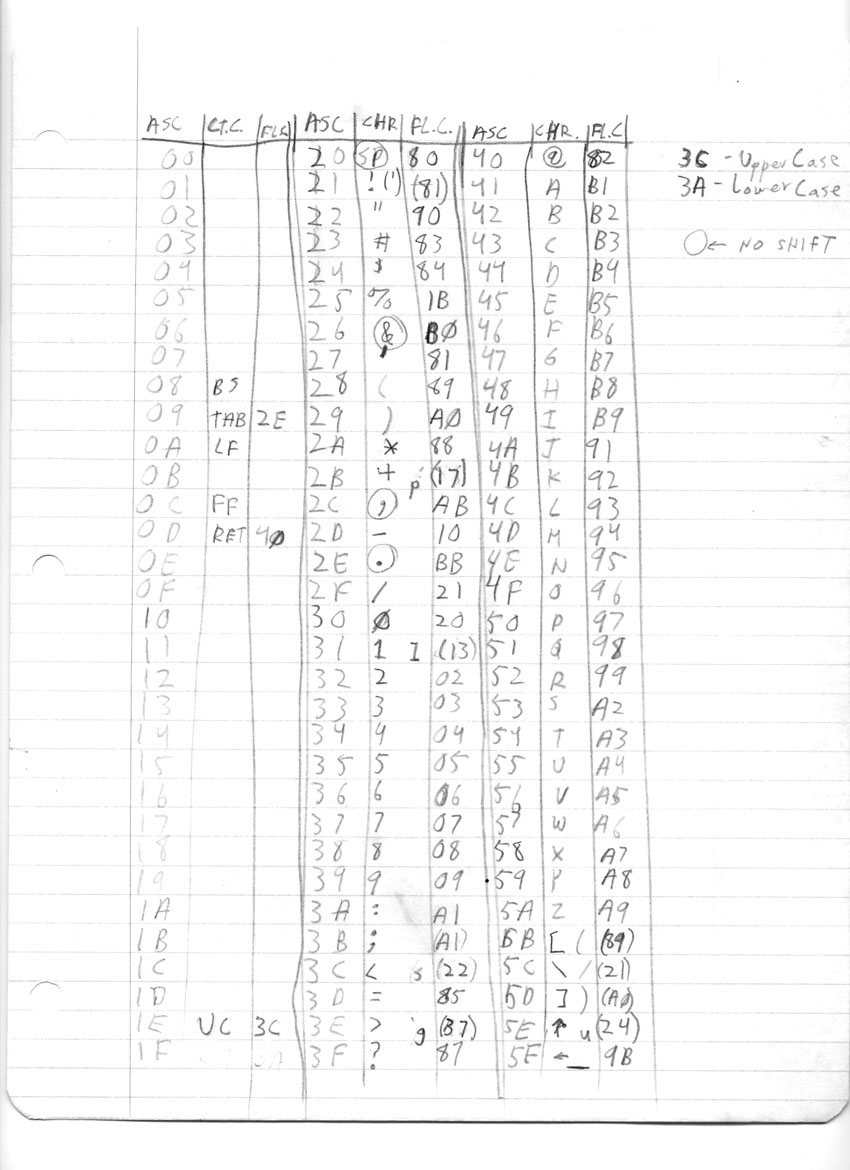 ASC CT.C. FLC ASC CHR FL.C. ASC CHR. FL.C
00 20 SP 80 40 @ 82 3C - Upper Case
01 21 ! (') (81) 41 A B1 3A - Lower Case
02 22 " 90 42 B B2
03 23 # 83 43 C B3 ○← NO SHIFT
04 24 $ 84 44 D B4
05 25 % 1B 45 E B5
06 26 & BØ 46 F B6
07 27 ' 81 47 G B7
08 BS 28 ( 89 48 H B8
09 TAB 2E 29 ) AØ 49 I B9
0A LF 2A * 88 4A J 91
0B 2B + p (17) 4B K 92
0C FF 2C , AB 4C L 93
0D RET 4Ø 2D - 10 4D M 94
0E 2E . BB 4E N 95
0F 2F / 21 4F O 96
10 30 Ø 20 50 P 97
11 31 1 I (13) 51 Q 98
12 32 2 02 52 R 99
13 33 3 03 53 S A2
14 34 4 04 54 T A3
15 35 5 05 55 U A4
16 36 6 06 56 V A5
17 37 7 07 57 W A6
18 38 8 08 58 X A7
19 39 9 09 59 Y A8
1A 3A : A1 5A Z A9
1B 3B ; (A1) 5B [ ( (89)
1C 3C < s (22) 5C \ / (21)
1D 3D = 85 5D ] ) (AØ)
1E UC 3C 3E > g (37) 5E ↑ u (24)
1F 3A 3F ? 87 5F ← _ 9B